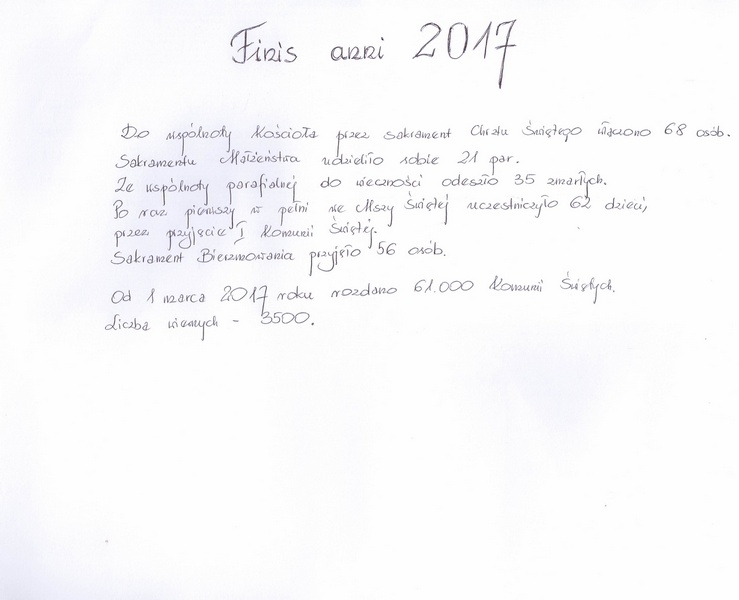 Finis anni 2017
Do wspólnoty Kościoła przez sakrament Chrztu Świętego włączono 68 osób.
Sakramentu Małżeństwa udzieliło sobie 21 par.
Ze wspólnoty parafialnej do wieczności odeszło 35 zmarłych.
Po raz pierwszy w pełni we Mszy Świętej uczestniczyło 62 dzieci,
przez przyjęcie I Komunii Świętej.
Sakrament Bierzmowania przyjęło 56 osób.
Od 1 marca 2017 roku rozdano 61.000 Komunii Świętych.
Liczba wiernych - 3500.